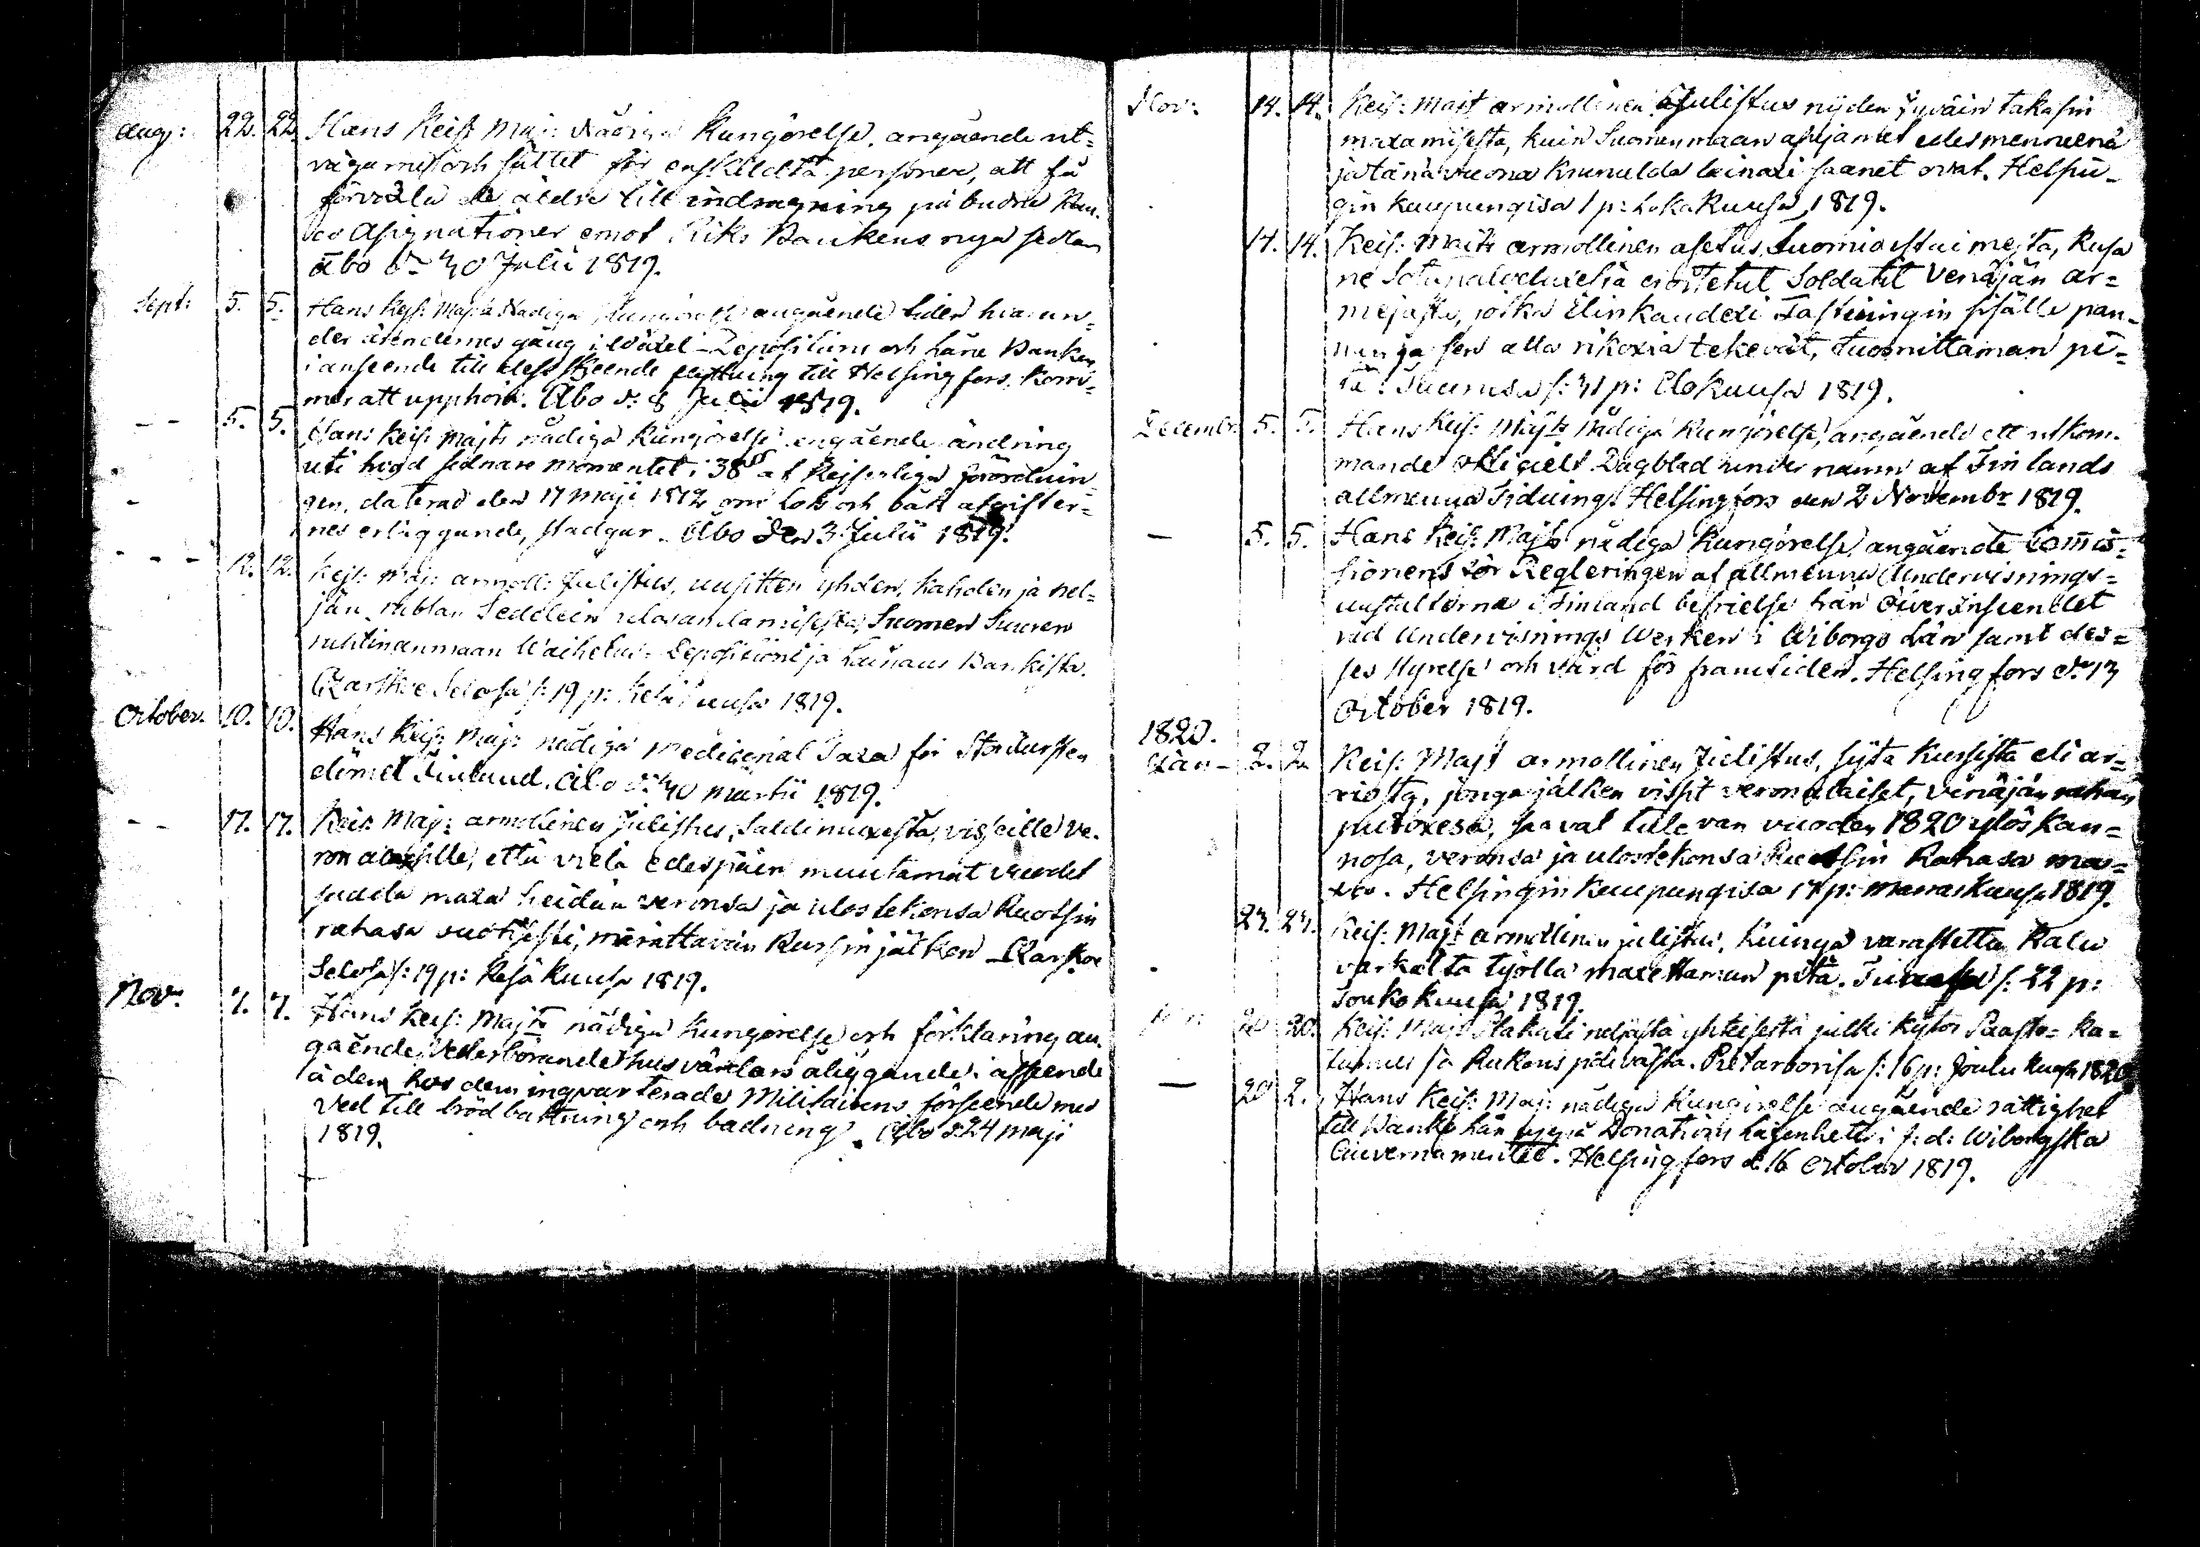 Aug: 22. 22. Hans Keis: Maj: Nådiga Kungörelse, angående ut=
vägarne och sättet för enskildta personer, att få
förvexla de äldre till indragning påbudne Ban=
co Assignationer emot Riks Bankens nya sedlar
Åbo dn 30 Julii 1819.
Sept: 5. 5. Hans Kejs: Maj:ts Nådiga Kungörelse angående tiden hvarun=
der ärendernes gång i Wäxel- Depositions och Låne Banken
i anseende till dess skeende flyttning till Helsingfors, kom=
mer att upphöra. Åbo d: 8 Julii 1819.
- - 5. 5. Hans Keis: Majts nådiga Kungörelse angående ändring
uti hvad sednare momentet i 38 § af Kejserliga förordnin=
gen, daterad den 17 Maji 1812 om Lots och båk afgifter=
nes erläggande, stadgar. Åbo den 3 Julii 1819.
- - - 12. 12. Kejs: Maj: armoll: Julistus, uusitten yhden, kahden ja nel=
jän rublan Sedelein ulosandamisesta, Suomen Suuren
ruhtinanmaan Waihetus- Depositioni ja Lainaus Bankista.
Czarskoe Selossa s: 19 p: Kesä Kuusa 1819.
October. 10. 10. Hans Keis: Maj: nådiga Medicinal Taxa för Storfursten
dömet Finland. Åbo d: 30 Martii 1819.
- - 17. 17. Keis: Maj: armollinen Julistus, Saldimuxesta, visseille ve=
ron alaisille, että vielä edespäin muutamat vuodet
saada maxa heidän veronsa ja ulostekonsa Ruotsin
rahasa suotuisesti, määrättävän Kursin jälken Czarskoe
Selosa s: 19 p: Kesä Kuusa 1819.
Nov: 7. 7. Hans Keis: Majts nådiga Kungörelse och förklaring an=
gående Vederbörande husvärdars åliggande i afseende
å den hos dem inqvarterade Militairens förseende med
Ved till bröd bakning och badning. Åbo d: 24 Maji
1819.
Nov: 14. 14. Keis: Majt armollinen Julistus niiden Jyväin takasin
maxamisesta, kuin Suomenmaan asujamet edesmennenä
ja tänä vuona Krunulda lainaxi saanet ovat. Helsin=
gin kaupungisa 1 p: Loka Kuusa 1819.
14. 14. Keis: Majts armollinen asetus Tuomioistuimesta, Kusa
ne Sotapalveluxesta eroitetut Soldatit Venäjän ar=
mejasta, jotka Elinkaudexi Fästningin sisälle pan=
nan ja sen alla rikoxia tekevät, tuomittaman pi=
tä. Turusa s: 31 p: Elokuusa 1819.
Decembr. 5. 5. Hans Keis: Majts Nådiga Kungörelse, angående ett utkom=
mande officielt Dagblad under namn af Finlands
allmenna Tidning. Helsingfors den 2 Novembr 1819.
— 5. 5. Hans Keis: Majts nådiga Kungörelse, angående Commis=
sionens för Regleringen af allmenna Undervisnings=
anstalterne i Finland befrielse från överinseendet
vid Undervisnings Werken i Wiborgs Län samt des=
ses styrelse och vård för framtiden. Helsingfors dn 13
October 1819.
1820.
Jan- 2. 2. Keis: Majt armollinen Julistus, siitä Kursista eli ar=
viosta, jonga jälken visit veronalaiset, venäjän rahan
puutoxesa, saavat tulevan vuoden 1820 ylöskan=
nosa, veronsa ja ulostekonsa Ruotsin Rahasa max=
xaa. Helsingin kaupungisa 17 p: Marras Kuusa 1819.
23. 23. Keis: Majt armollinen julistus, Kuinga varastettu Kalu
varkalta työllä maxettaman pitä. Turusa s: 22 p:
Touko Kuusa 1819.
20 20. Keis: Majts Plakati neljästä yhteisestä julki Kijtos Paasto= Ka=
tumus ja Rukous päivästä. Pietarborisa s: 16 p: Joulu Kuusa 1820
— 20 2. Hans Keis: Maj: nådiga Kungörelse angående rättighet
till Banko Lån uppå Donations Lägenheter i f: d: Wiborgska
Gouvernamentet. Helsingfors d 16 October 1819.